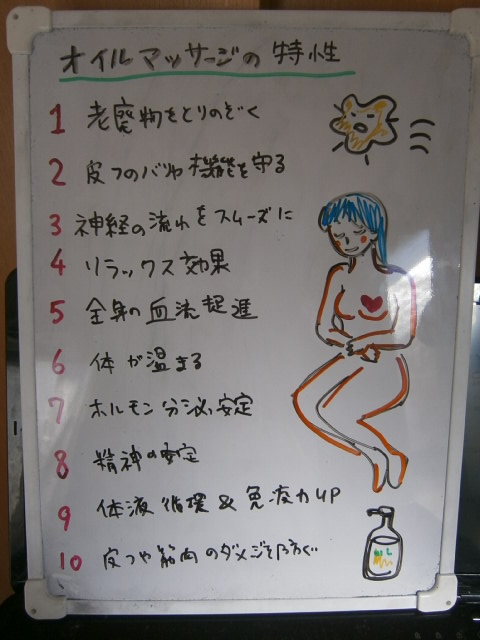 オイルマッサージの特性
1 老廃物をとりのぞく
2 皮フのバリヤ機能を守る
3 神経の流れをスムーズに
4 リラックス効果
5 全身の血流促進
6 体が温まる
7 ホルモン分泌安定
8 精神の安定
9 体液循環&免疫力UP
10 皮フや筋肉のダメージを防ぐ